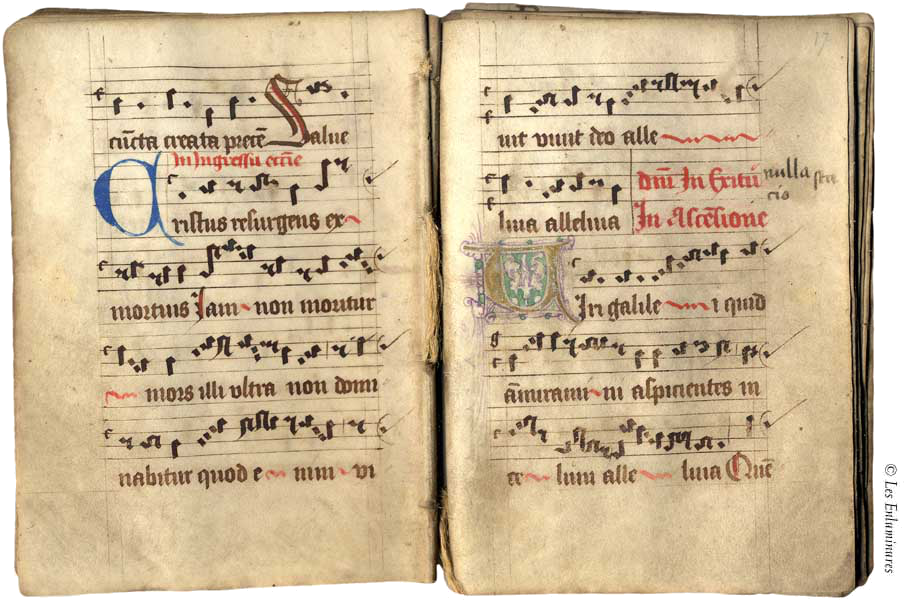 cūcta creata precē Salue
In Ingressu eccīe
Cristus resurgens ex
mortuis Jam non moritur
mors illi vltra non domi
nabitur quod e nim vi
17
uit viuit deo alle
luia alleluia
Dnī In Exitu
nulla
In Ascēsione
Uiri galile i quid
āmirami ni aspicientes in
ce lum alle luia Quē
© Les Enluminures